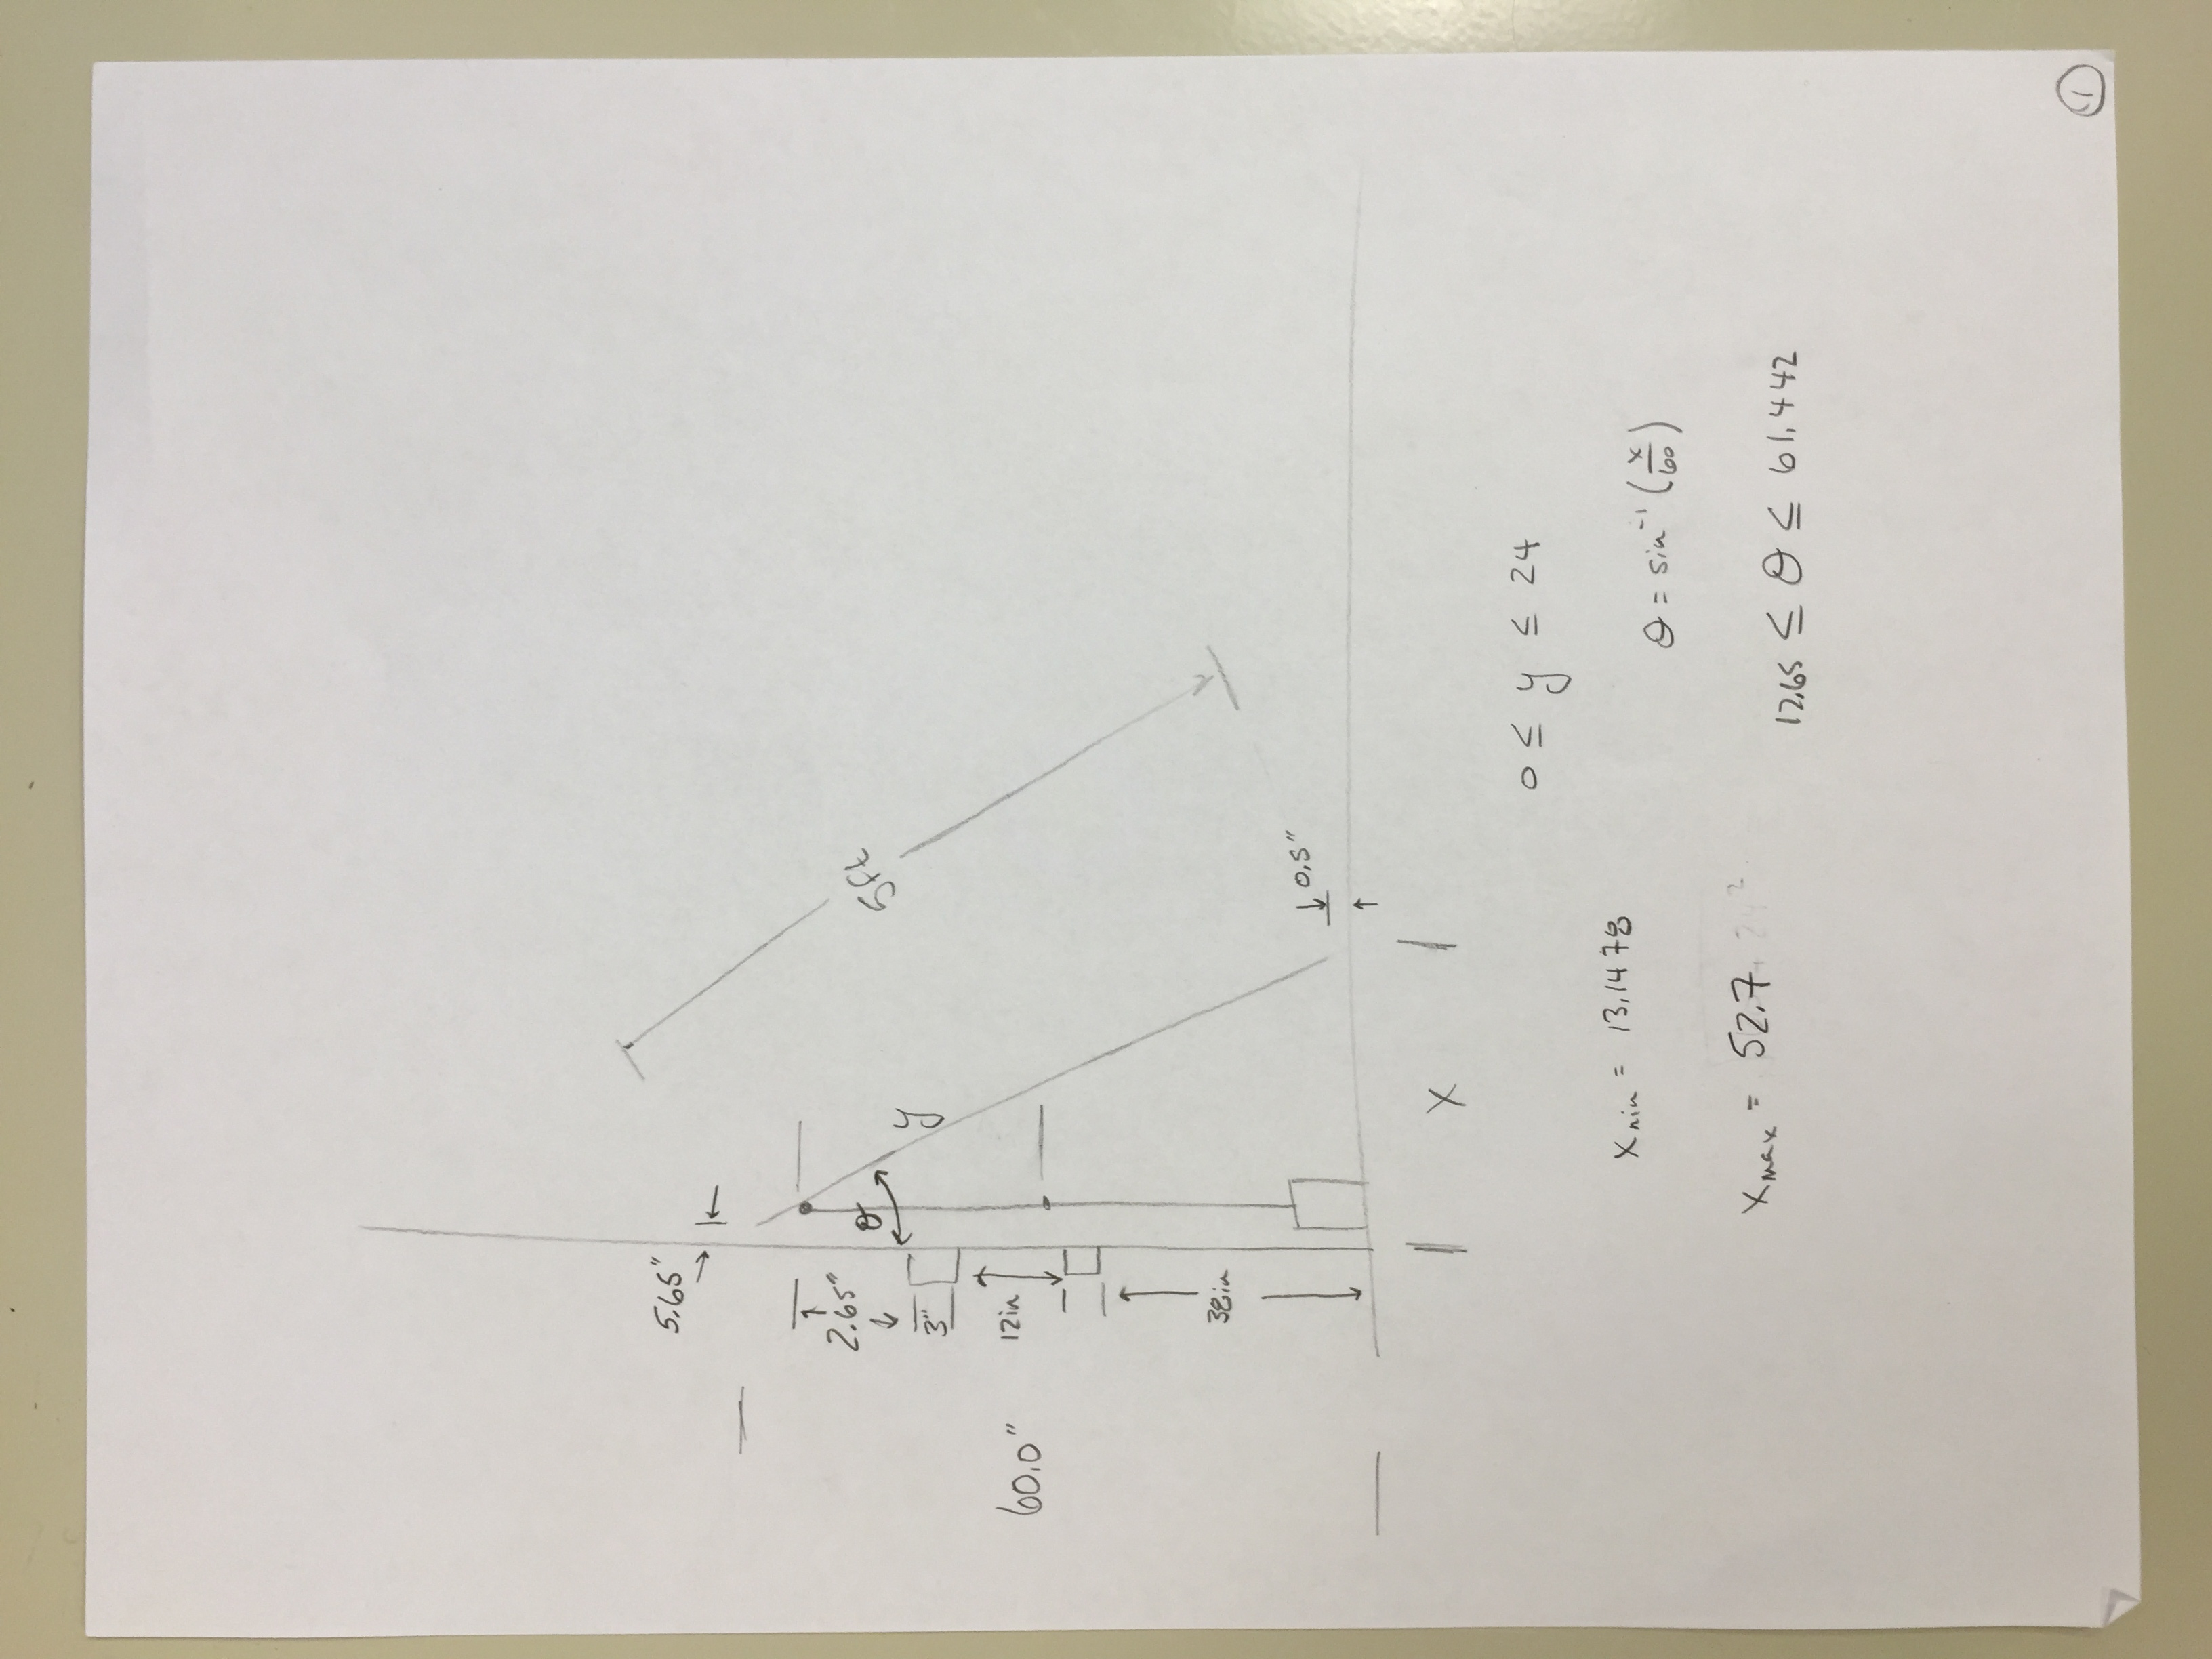 5.65"
2.65"
θ
3"
y
5ft
12in
60.0"
38in
0.5"
x
0 ≤ y ≤ 24
x min = 13.1478
θ = sin⁻¹ (x/60)
x max = 52.7
12.65 ≤ θ ≤ 61.442
1